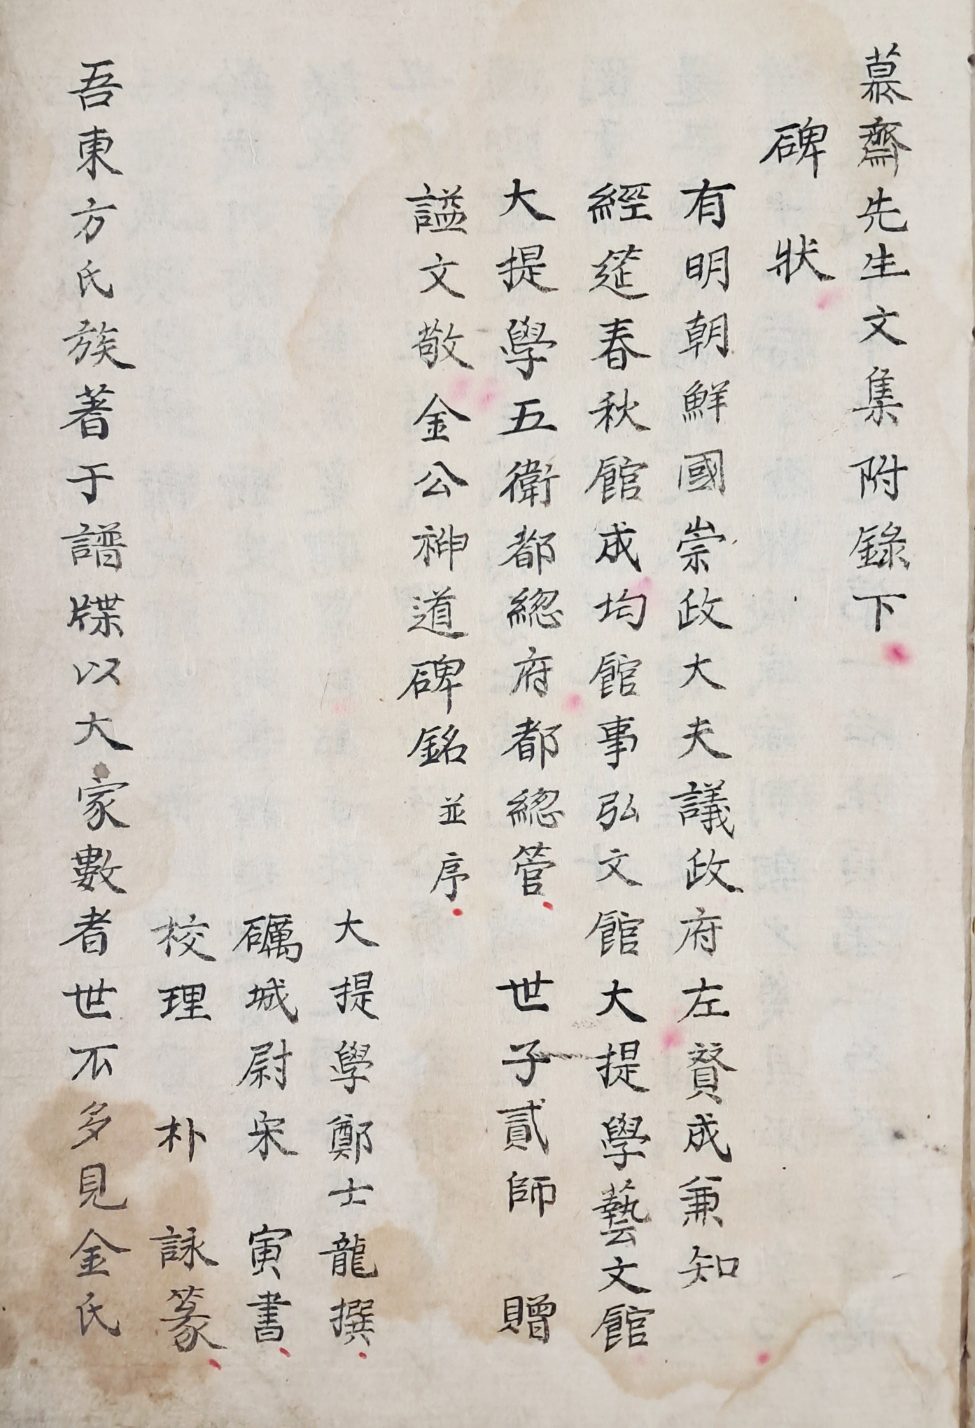 慕齋先生文集附錄下
碑狀
有明朝鮮國崇政大夫議政府左賛成兼知
經筵春秋館成均館事弘文館大提學藝文館
大提學五衛都緫府都緫管 世子貳師 贈
謚文敬金公神道碑銘並序
大提學鄭士龍撰
礪城尉宋 寅書
校理 朴 詠篆
吾東方氏族著于譜牒以大家數者世不多見金氏